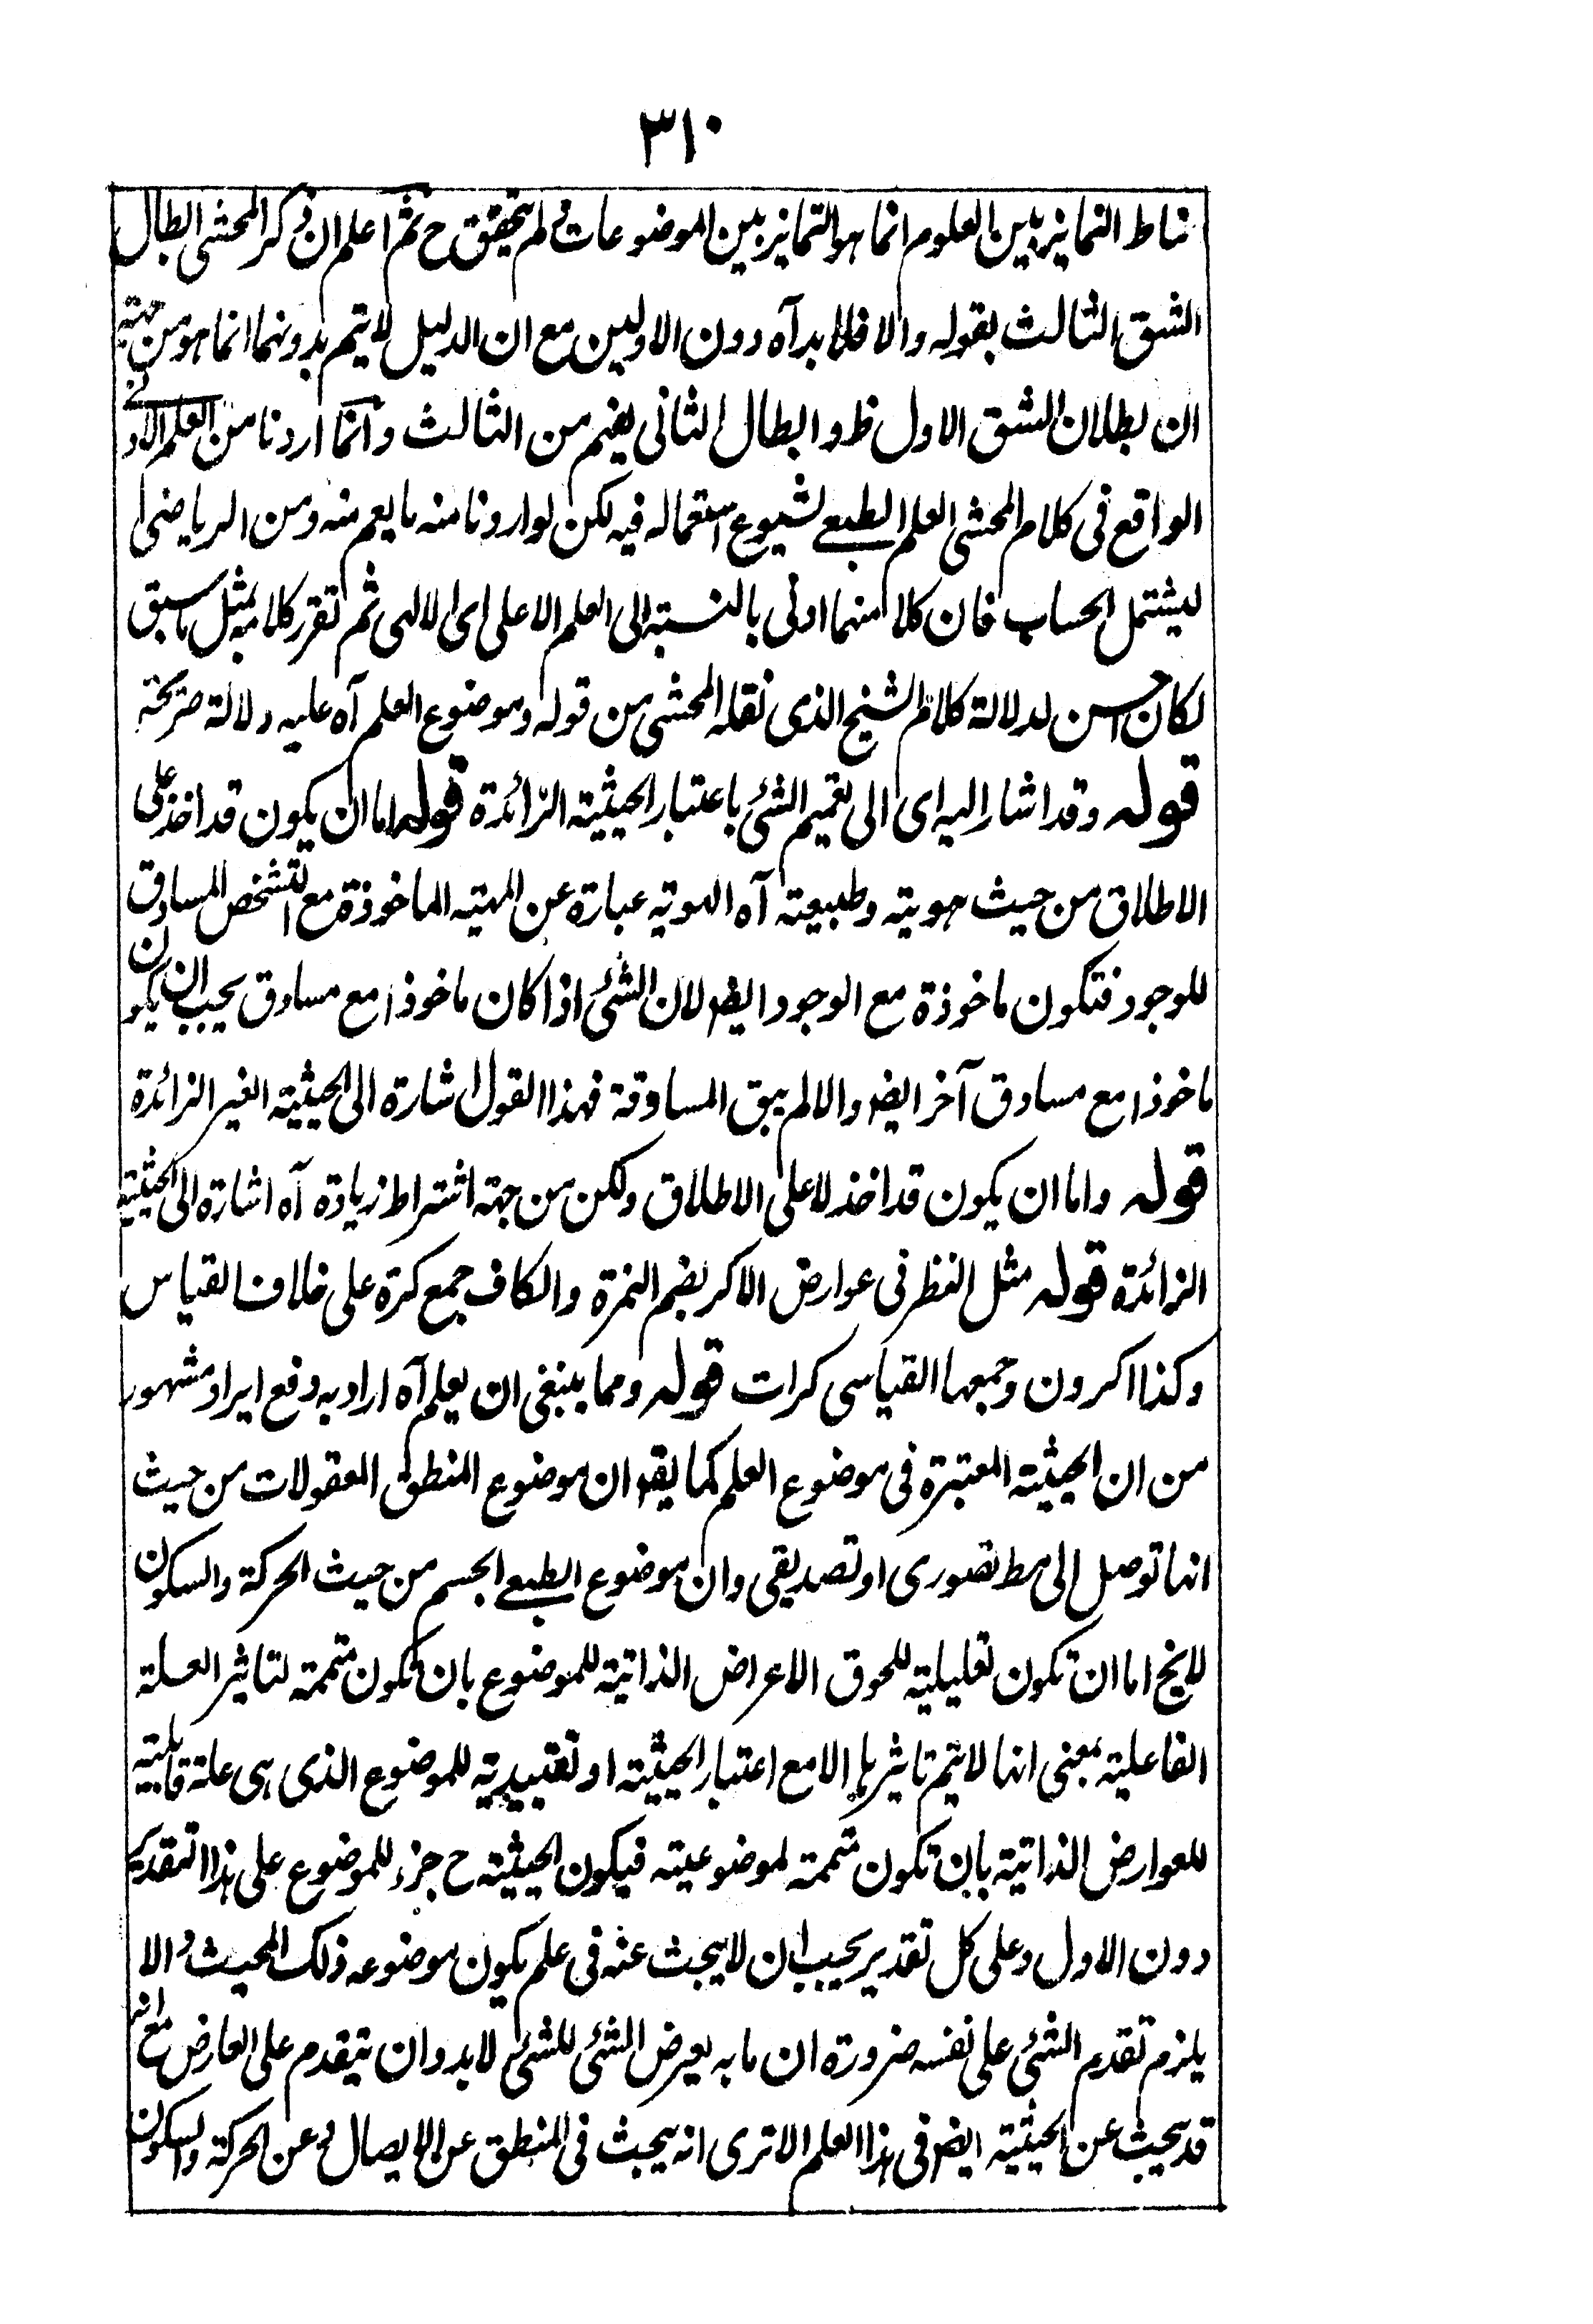 ٣١٠
مناط التمايز بين العلوم انما هو التمايز بين الموضوعات ولم يتحقق ح ثم اعلم ان ذكر المحشى ابطال
الشق الثالث بقوله والا فلا بد آه دون الاولين مع ان الدليل لا يتم بدونهما انما هو من جهة
ان بطلان الشق الاول ظ وابطال الثانى يفهم من الثالث وانما اردنا من العلم الادنى
الواقع فى كلام المحشى العلم الطبعى لشيوع استعماله فيه لكن لو اردنا منه ما يعم منه ومن الرياضى
ليشتمل الحساب فان كلا منهما ادنى بالنسبة الى العلم الاعلى اى الالهى ثم تقرر كلامه بمثل ما سبق
لكان احسن لدلالة كلام الشيخ الذى نقله المحشى من قوله وموضوع العلم آه عليه دلالة صريحة
قوله وقد اشار اليه اى الى تعميم الشئ باعتبار الحيثية الزائدة قوله اما ان يكون قد اخذ على
الاطلاق من حيث هويته وطبيعته آه الهوية عبارة عن المهية الماخوذة مع التشخص المساوق
للوجود فتكون ماخوذة مع الوجود ايضا لان الشئ اذا كان ماخوذا مع مساوق يجب ان يكون
ماخوذا مع مساوق آخر ايضا والا لم يبق المساوقة فهذا القول اشارة الى الحيثية الغير الزائدة
قوله واما ان يكون قد اخذ لا على الاطلاق ولكن من جهة اشتراط زيادة آه اشارة الى الحيثية
الزائدة قوله مثل النظر فى عوارض الاكر بضم الهمزة والكاف جمع كرة على خلاف القياس
وكذا اكرون وجمعها القياسى كرات قوله ومما ينبغى ان يعلم آه اراد به دفع ايراد مشهور
من ان الحيثية المعتبرة فى موضوع العلم كما يقو ان موضوع المنطق المعقولات من حيث
انها توصل الى مط تصورى او تصديقى وان موضوع الطبعى الجسم من حيث الحركة والسكون
لا يخ اما ان تكون تعليلية للحوق الاعراض الذاتية للموضوع بان تكون متممة لتاثير العلة
الفاعلية بمعنى انها لا يتم تاثيرها الا مع اعتبار الحيثية او تقييدية للموضوع الذى هى علة قابلية
للعوارض الذاتية بان تكون متممة لموضوعيته فيكون الحيثية ح جزء للموضوع على هذا التقدير
دون الاول وعلى كل تقدير يجب ان لا يبحث عنه فى علم يكون موضوعه ذلك المحيث والا
يلزم تقدم الشئ على نفسه ضرورة ان ما به يعرض الشئ للشئ لا بد وان يتقدم على العارض مع انه
قد يبحث عن الحيثية ايضا فى هذا العلم الا ترى انه يبحث فى المنطق عن الايصال وعن الحركة والسكون